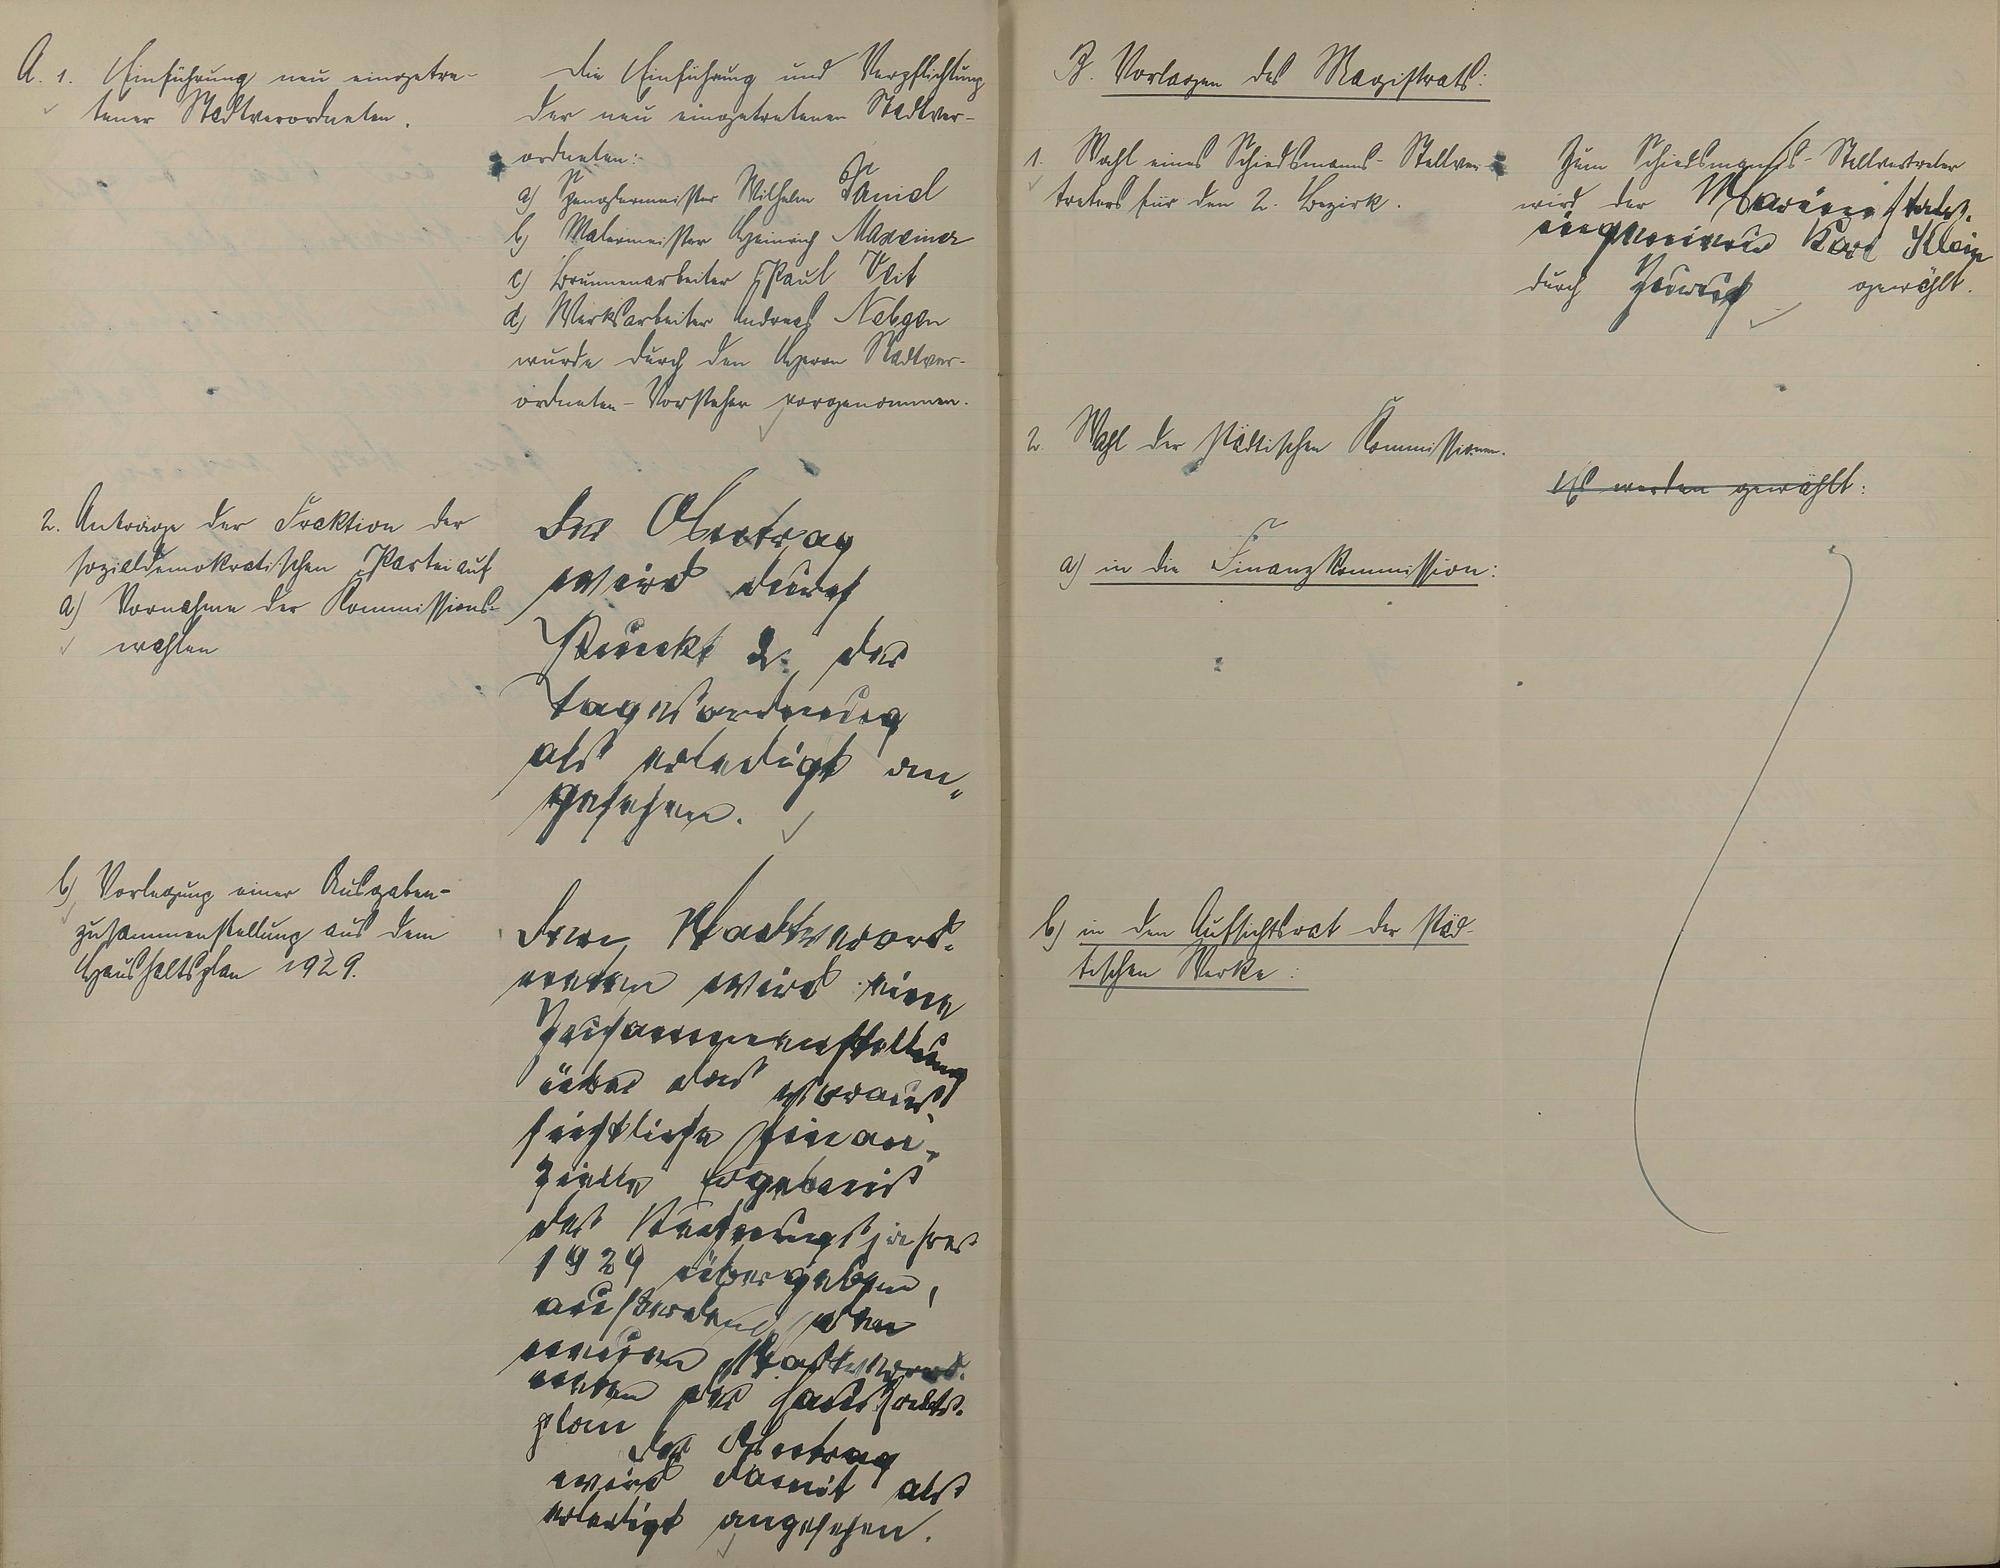 A. 1. Einführung neu eingetre-
tener Stadtverordneten.
Die Einführung und Verpflichtung
der neu eingetretenen Stadtver-
ordneten:
a) Spenglermeister Wilhelm Daniel
b) Malermeister Heinrich Maxeiner
c) Brunnenarbeiter Paul Veit
d) Werksarbeiter Andreas Nebgen
wurde durch den Herrn Stadtver-
ordneten-Vorsteher vorgenommen.
2. Anträge der Fraktion der
sozialdemokratischen Partei auf
a) Vornahme der Kommissions-
wahlen
Der Antrag
wird durch
Punkt 2 der
Tagesordnung
als erledigt an-
gesehen.
b) Vorlegung einer Ausgaben-
zusammenstellung aus dem
Haushaltsplan 1929.
Den Stadtverord-
neten wird eine
Zusammenstellung
über das voraus-
sichtliche finan-
zielle Ergebnis
des Rechnungsjahres
1929 übergeben,
außerdem den
neuen Stadtverord-
neten der Haushalts-
plan
Der Antrag
wird damit als
erledigt angesehen.
B. Vorlagen des Magistrats:
1. Wahl eines Schiedsmanns-Stellver-
treters für den 2. Bezirk.
Zum Schiedsmanns-Stellvertreter
wird der
Karl Klein
durch Zuruf gewählt.
2. Wahl der städtischen Kommissionen.
Es werden gewählt:
a) in die Finanzkommission:
b) in den Aufsichtsrat der städ-
tischen Werke: